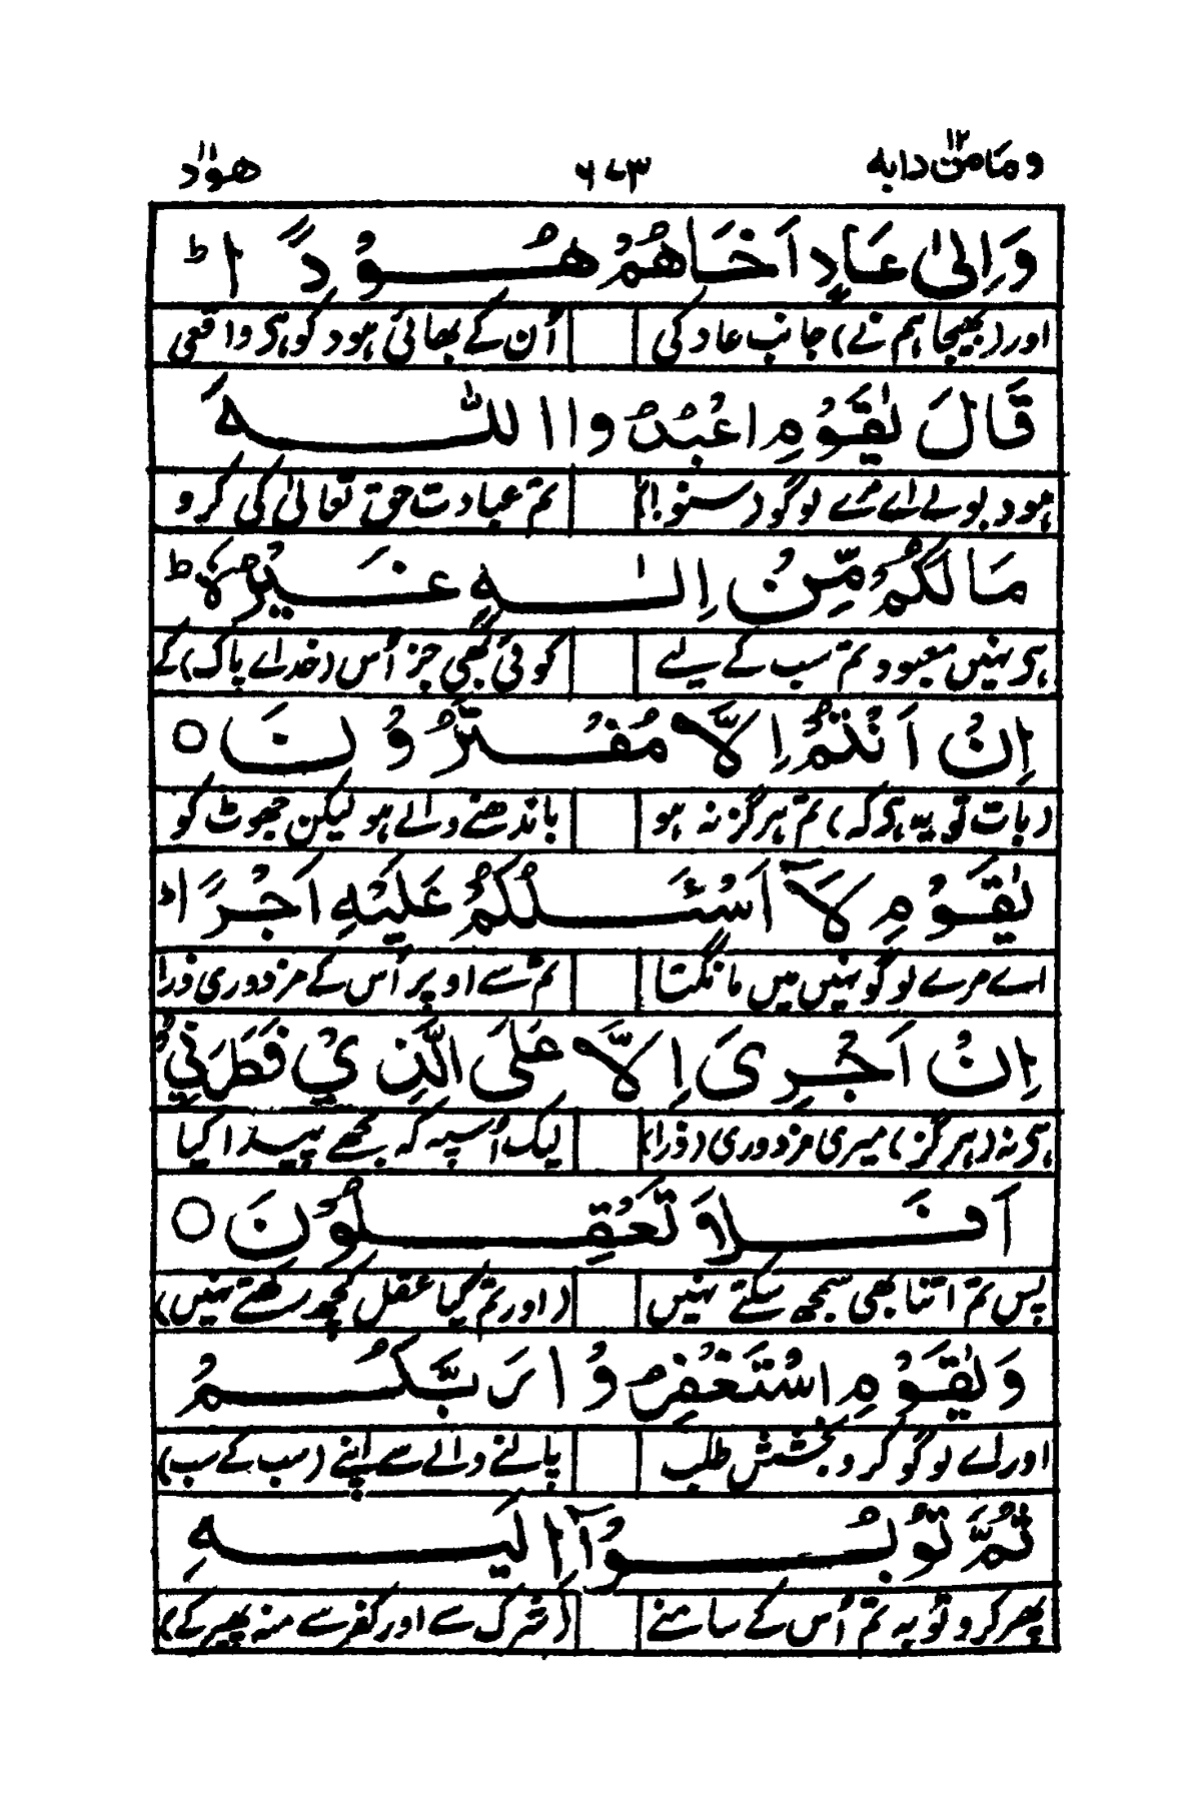 وما من دابه ۱۲ ۶۷۳ هود ۱۱
وَاِلىٰ عَادٍ اَخَاهُمْ هُوْدًا ؕ
اور (بھیجا ہم نے) جانب عاد کی اُن کے بھائی ہود کو ہی واقعی
قَالَ يٰقَوْمِ اعْبُدُوا اللّٰهَ
ہود بولے اے مرے لوگو (سنو!) تم عبادت حق تعالیٰ کی کرو
مَالَكُمْ مِّنْ اِلٰهٍ غَيْرُهٗ ؕ
ہی نہیں معبود تم سب کے لیے کوئی بھی جز اُس (خدائے پاک) کے
اِنْ اَنْتُمْ اِلَّا مُفْتَرُوْنَ ○
(بات تو یہ ہی کہ) تم ہرگز نہ ہو باندھنے والے ہو لیکن جھوٹ کو
يٰقَوْمِ لَاۤ اَسْـَٔلُكُمْ عَلَيْهِ اَجْرًا ؕ
اے مرے لوگو نہیں میں مانگتا تم سے اوپر اُس کے مزدوری ذرا
اِنْ اَجْرِىَ اِلَّا عَلَى الَّذِيْ فَطَرَنِيْ ؕ
ہی نہ (ہرگز) میری مزدوری (ذرا) لیک اُسپہ کہ مجھے پیدا کیا
اَفَلَا تَعْقِلُوْنَ ○
پس تم اتنا بھی سمجھ سکتے نہیں (اور تم کیا عقل کچھ رکھتے نہیں)
وَيٰقَوْمِ اسْتَغْفِرُوْا رَبَّكُمْ
اور اے لوگو کرو بخشش طلب پالنے والے سے اپنے (سب کے سب)
ثُمَّ تُوْبُوْۤا اِلَيْهِ
پھر کرو توبہ تم اُس کے سامنے (شرک سے اور کفر سے منہ پھیر کے)